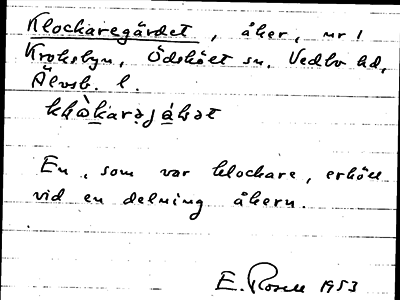 Klockaregärdet, åker, nr 1
Kroksbyn, Ödskölt sn. Vedbo hd,
Älvsb. l.
En, som var klockare, erhöll
vid en delning åkern.
E. Rosell 1953